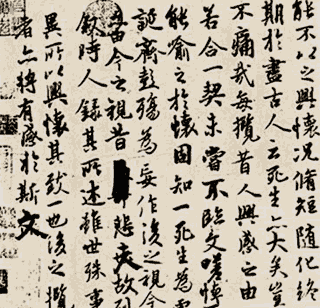 能不以之興懷況脩短隨化終
期於盡古人云死生亦大矣豈
不痛哉每攬昔人興感之由
若合一契未嘗不臨文嗟悼
能喻之於懷固知一死生為虛
誕齊彭殤為妄作後之視今
亦由今之視昔悲夫故列
敘時人錄其所述雖世殊事
異所以興懷其致一也後之攬
者亦將有感於斯文